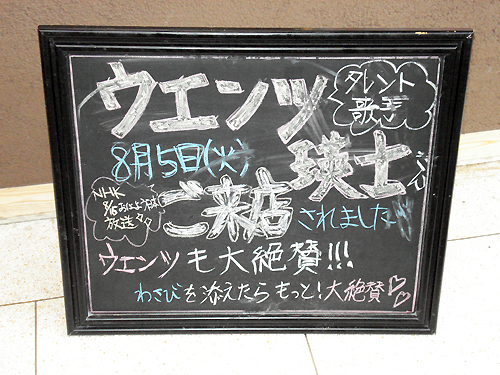 ウエンツ
タレント
歌手
8月5日(火)
瑛士さん
NHK
放送
ご来店されました
ウエンツも大絶賛!!!
わさびを添えたらもっと!大絶賛